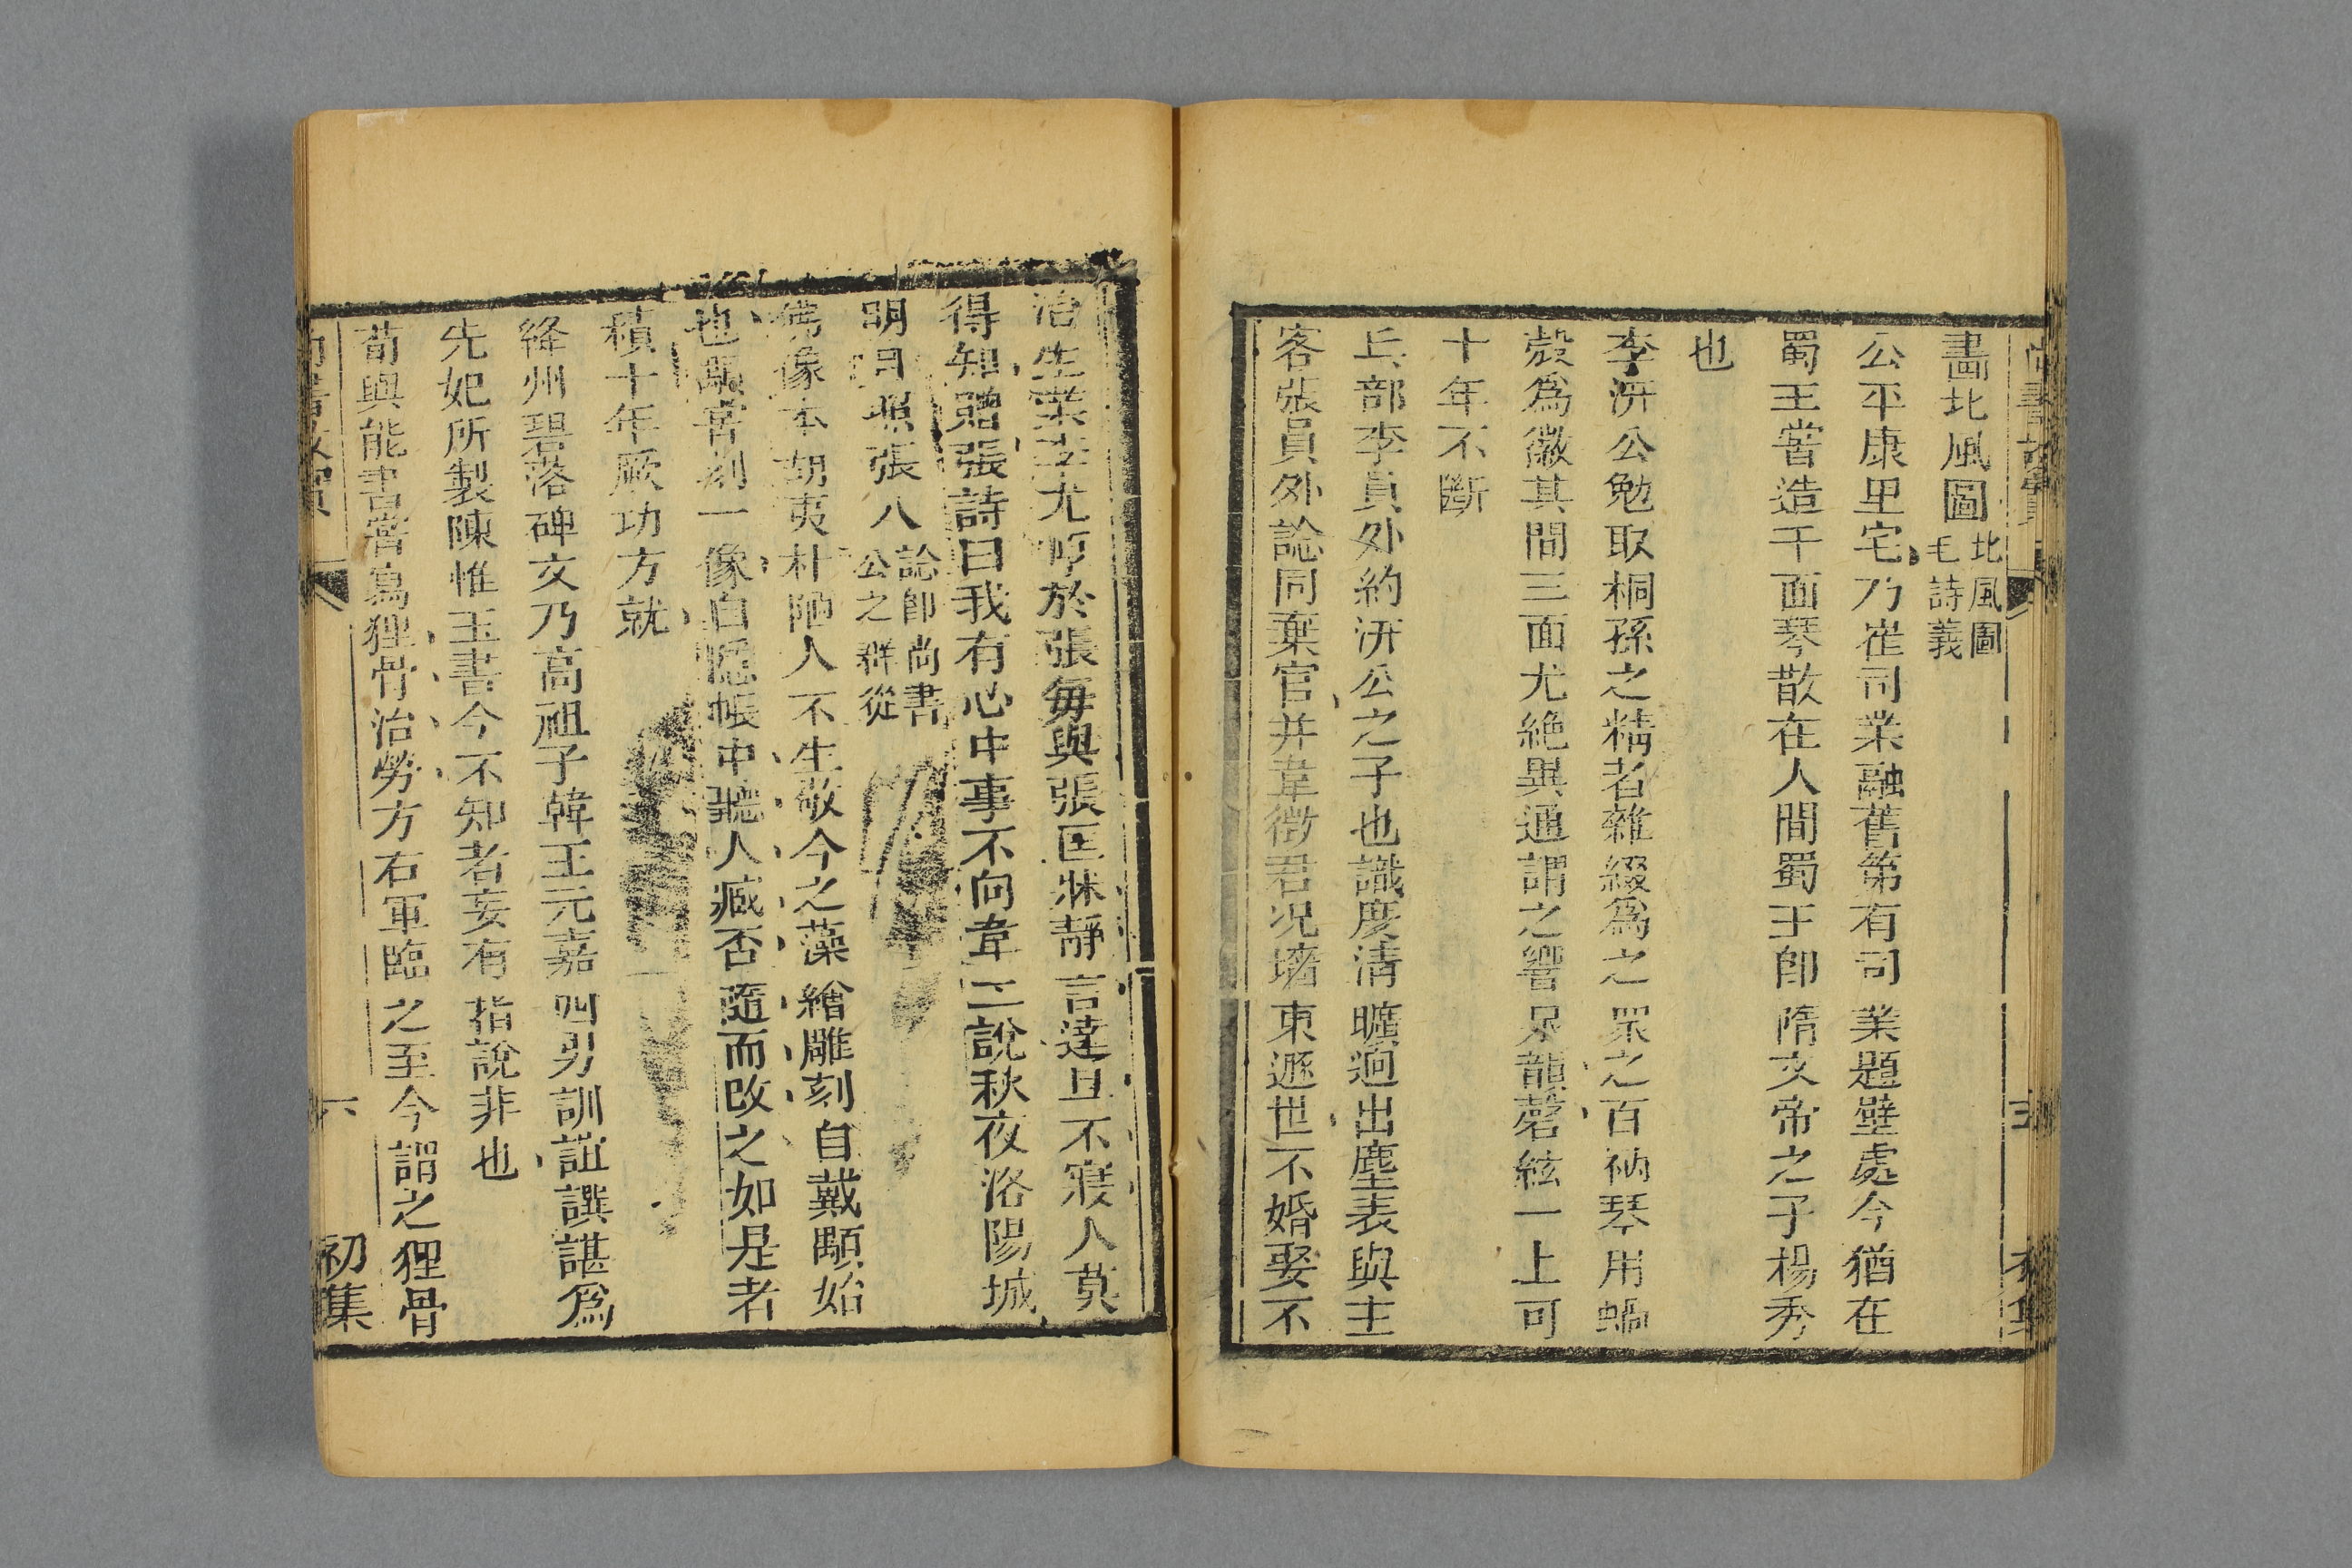 畫北風圖北風圖毛詩義
公平康里宅乃崔司業融舊第有司業題壁處今猶在
蜀王嘗造千面琴散在人間蜀王卽隋文帝之子楊秀
也
李汧公勉取桐孫之精者雜綴爲之罛之百衲琴用蝸
殼爲徽其間三面尤絶異通謂之響泉韻磬絃一上可
十年不斷
兵部李員外約汧公之子也識度清曠迥出塵表與主
客張員外諗同棄官并韋徵君况墻東遯世不婚娶不
治生業李尤厚於張每與張匡牀靜言達旦不寢人莫
得知贈張詩曰我有心中事不向韋二說秋夜洛陽城
明月照張八諗卽尚書公之群從
佛像本胡夷朴陋人不生敬今之藻繪雕刻自戴顒始
也顒嘗刻一像自隱帳中聽人臧否隨而改之如是者
積十年厥功方就
絳州碧落碑文乃高祖子韓王元嘉四男訓誼譔諶爲
先妃所製陳惟玉書今不知者妄有指說非也
荀輿能書嘗寫狸骨治勞方右軍臨之至今謂之狸骨
六
初集